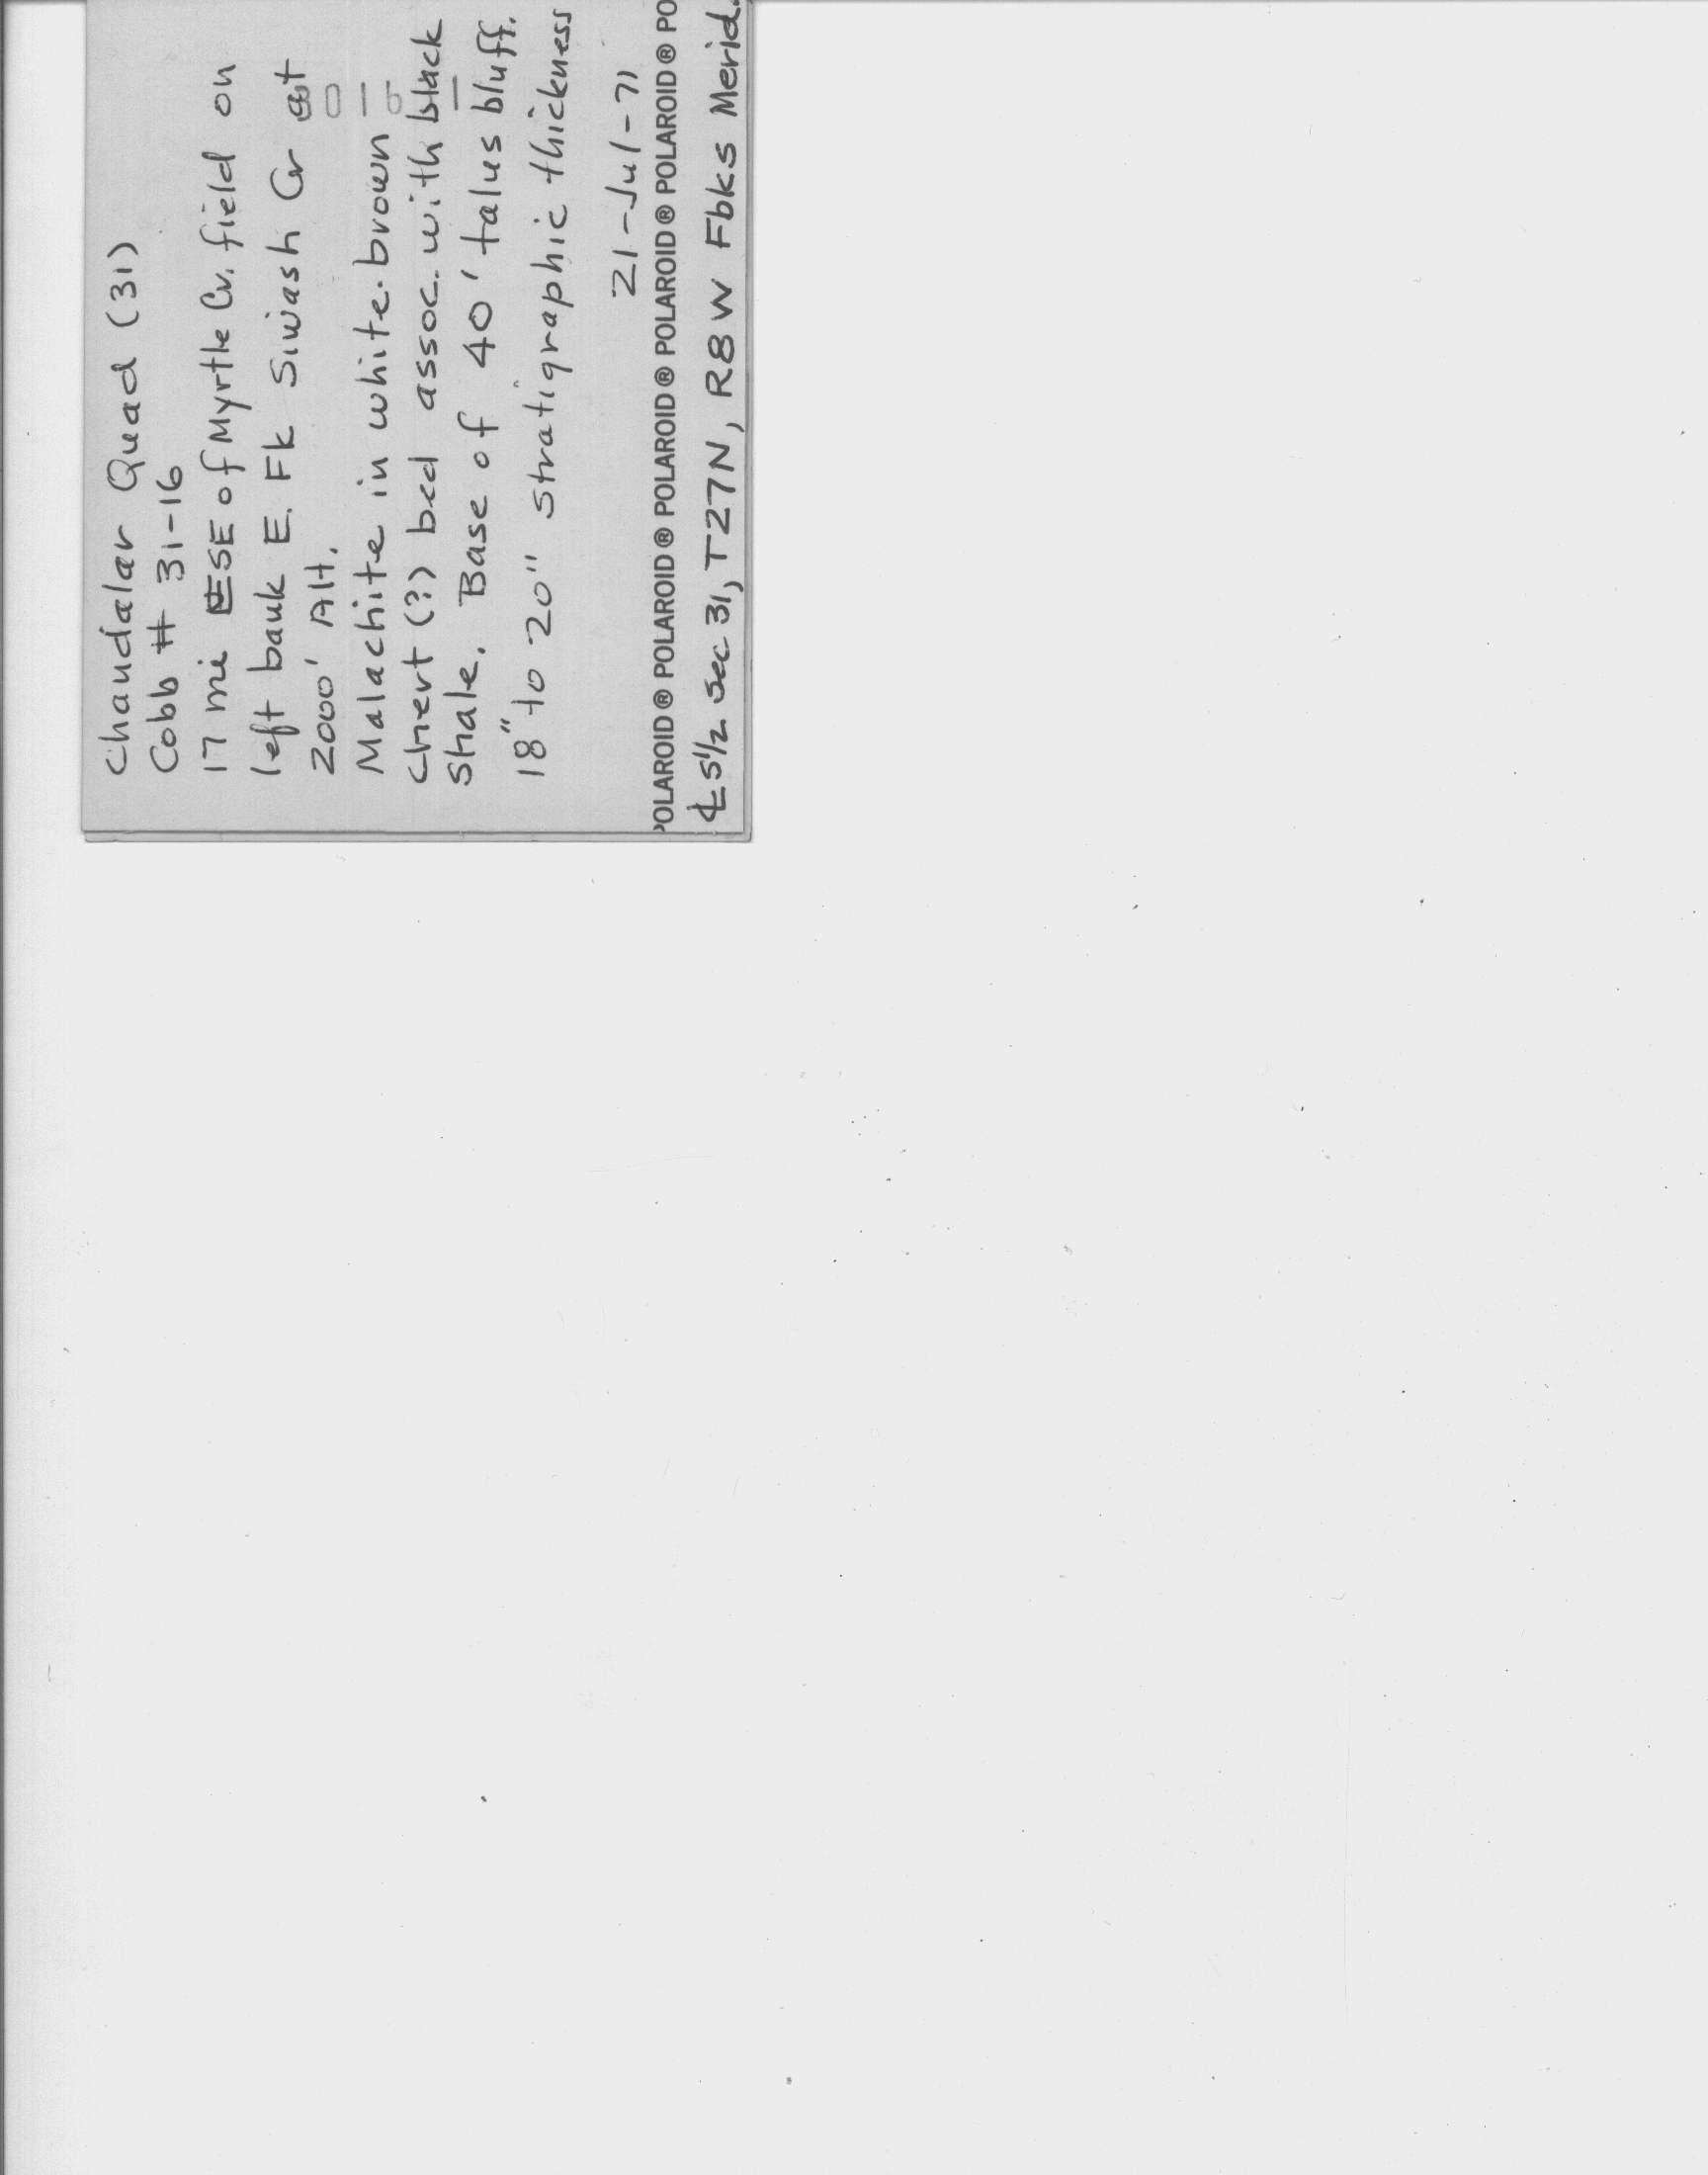 Chandalar Quad (31)
Cobb # 31-16
17 mi ESE of Myrtle Cr. field on
left bank E. Fk Siwash Cr at
2000' Alt.
Malachite in white-brown
chert (?) bed assoc. with black
shale. Base of 40' talus bluff.
18" to 20" stratigraphic thickness
21-Jul-71
POLAROID® POLAROID® POLAROID® POLAROID® POLAROID® PO
℄ S½ Sec 31, T27N, R8W Fbks Merid.